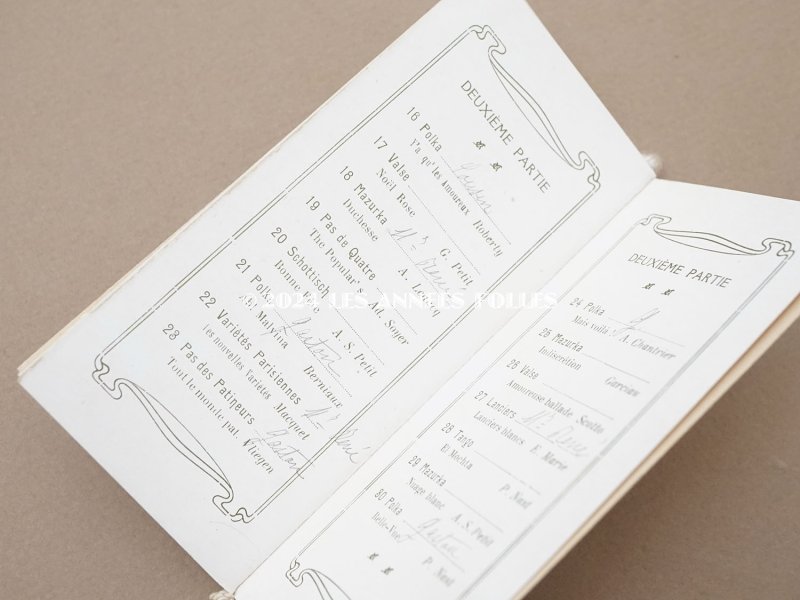 DEUXIÈME PARTIE
16 Polka
Y'a qu' les Amoureux Roberty
17 Valse
Noël Rose G. Petit
18 Mazurka
Duchesse A. Leducq
19 Pas de Quatre
The Popular's Ad. Soyer
20 Schottisch
Bonne fête A. S. Petit
21 Polka Gaston
Malvina Berniaux
22 Variétés Parisiennes
les nouvelles Variétés Macquet
23 Pas des Patineurs Gaston
Tout le monde pat. Fliegen
DEUXIÈME PARTIE
24 Polka
Mais voilà! A. Chantrier
25 Mazurka
Indiscrétion Garciau
26 Valse
Amoureuse ballade Scotto
27 Lanciers
Lanciers blancs E. Marie
28 Tango
El Mochia P. Nast
29 Mazurka
Nuage blanc A. S. Petit
30 Polka Gaston
Belle-Vue P. Nast
© 2024 LES ANNÉES FOLLES